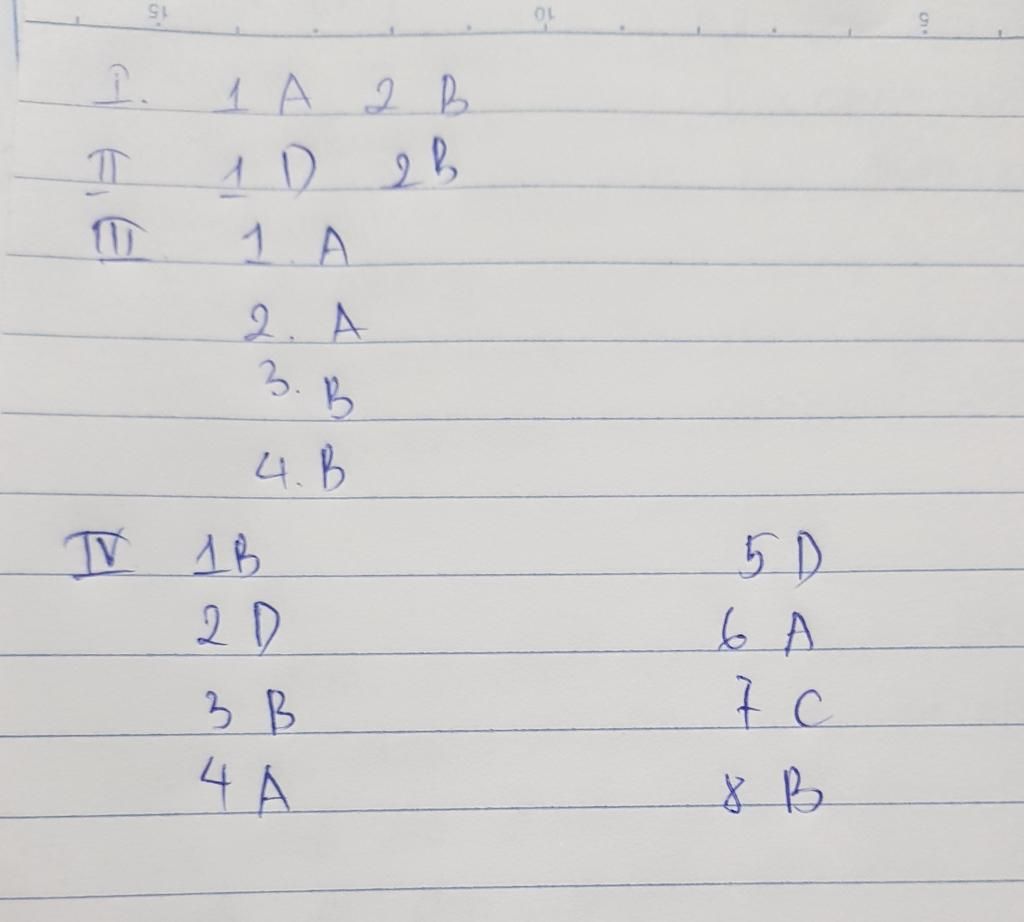 15 10 5
I. 1 A 2 B
II 1 D 2 B
III 1. A
2. A
3. B
4. B
IV 1 B 5 D
2 D 6 A
3 B 7 C
4 A 8 B